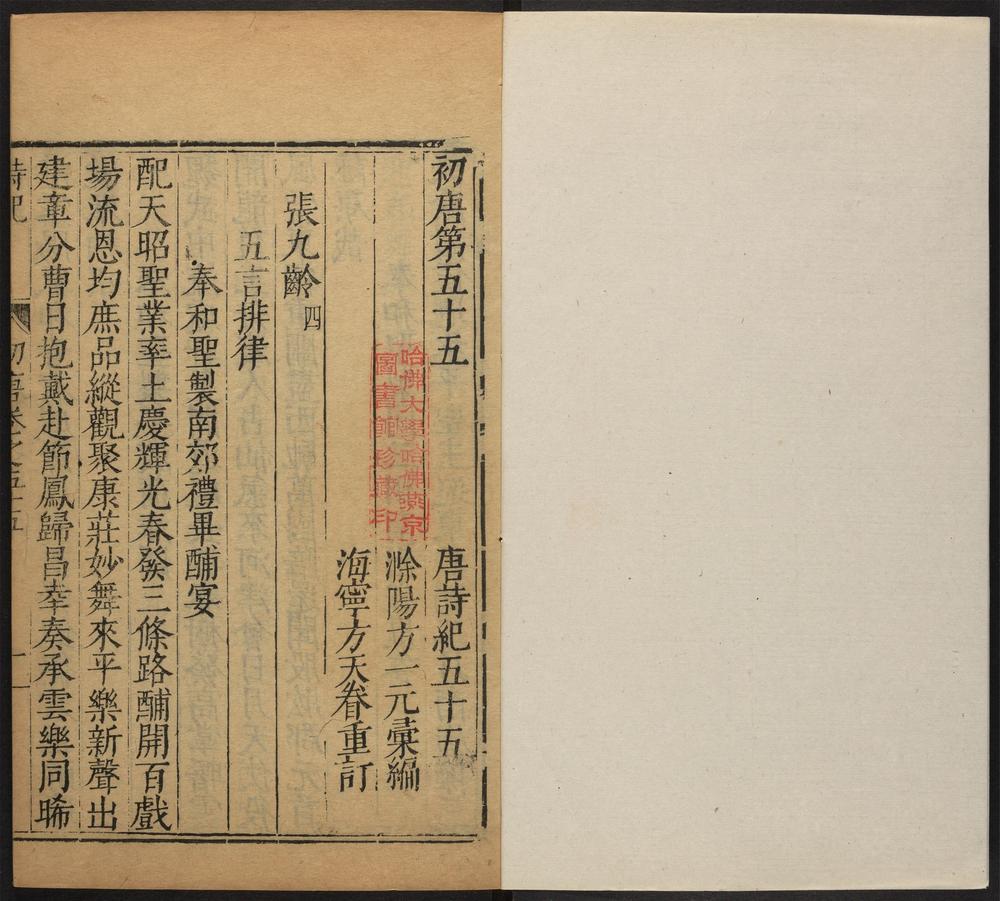 初唐第五十五
唐詩紀五十五
滁陽方一元彙編
海寧方天眷重訂
張九齡 四
五言排律
奉和聖製南郊禮畢酺宴
配天昭聖業率土慶輝光春發三條路酺開百戲
場流恩均庶品縱觀聚康莊妙舞來平樂新聲出
建章分曹日抱戴赴節鳳歸昌幸奏承雲樂同晞
詩紀
初唐卷之五十五
一
哈佛大學哈佛燕京
圖書館珍藏印